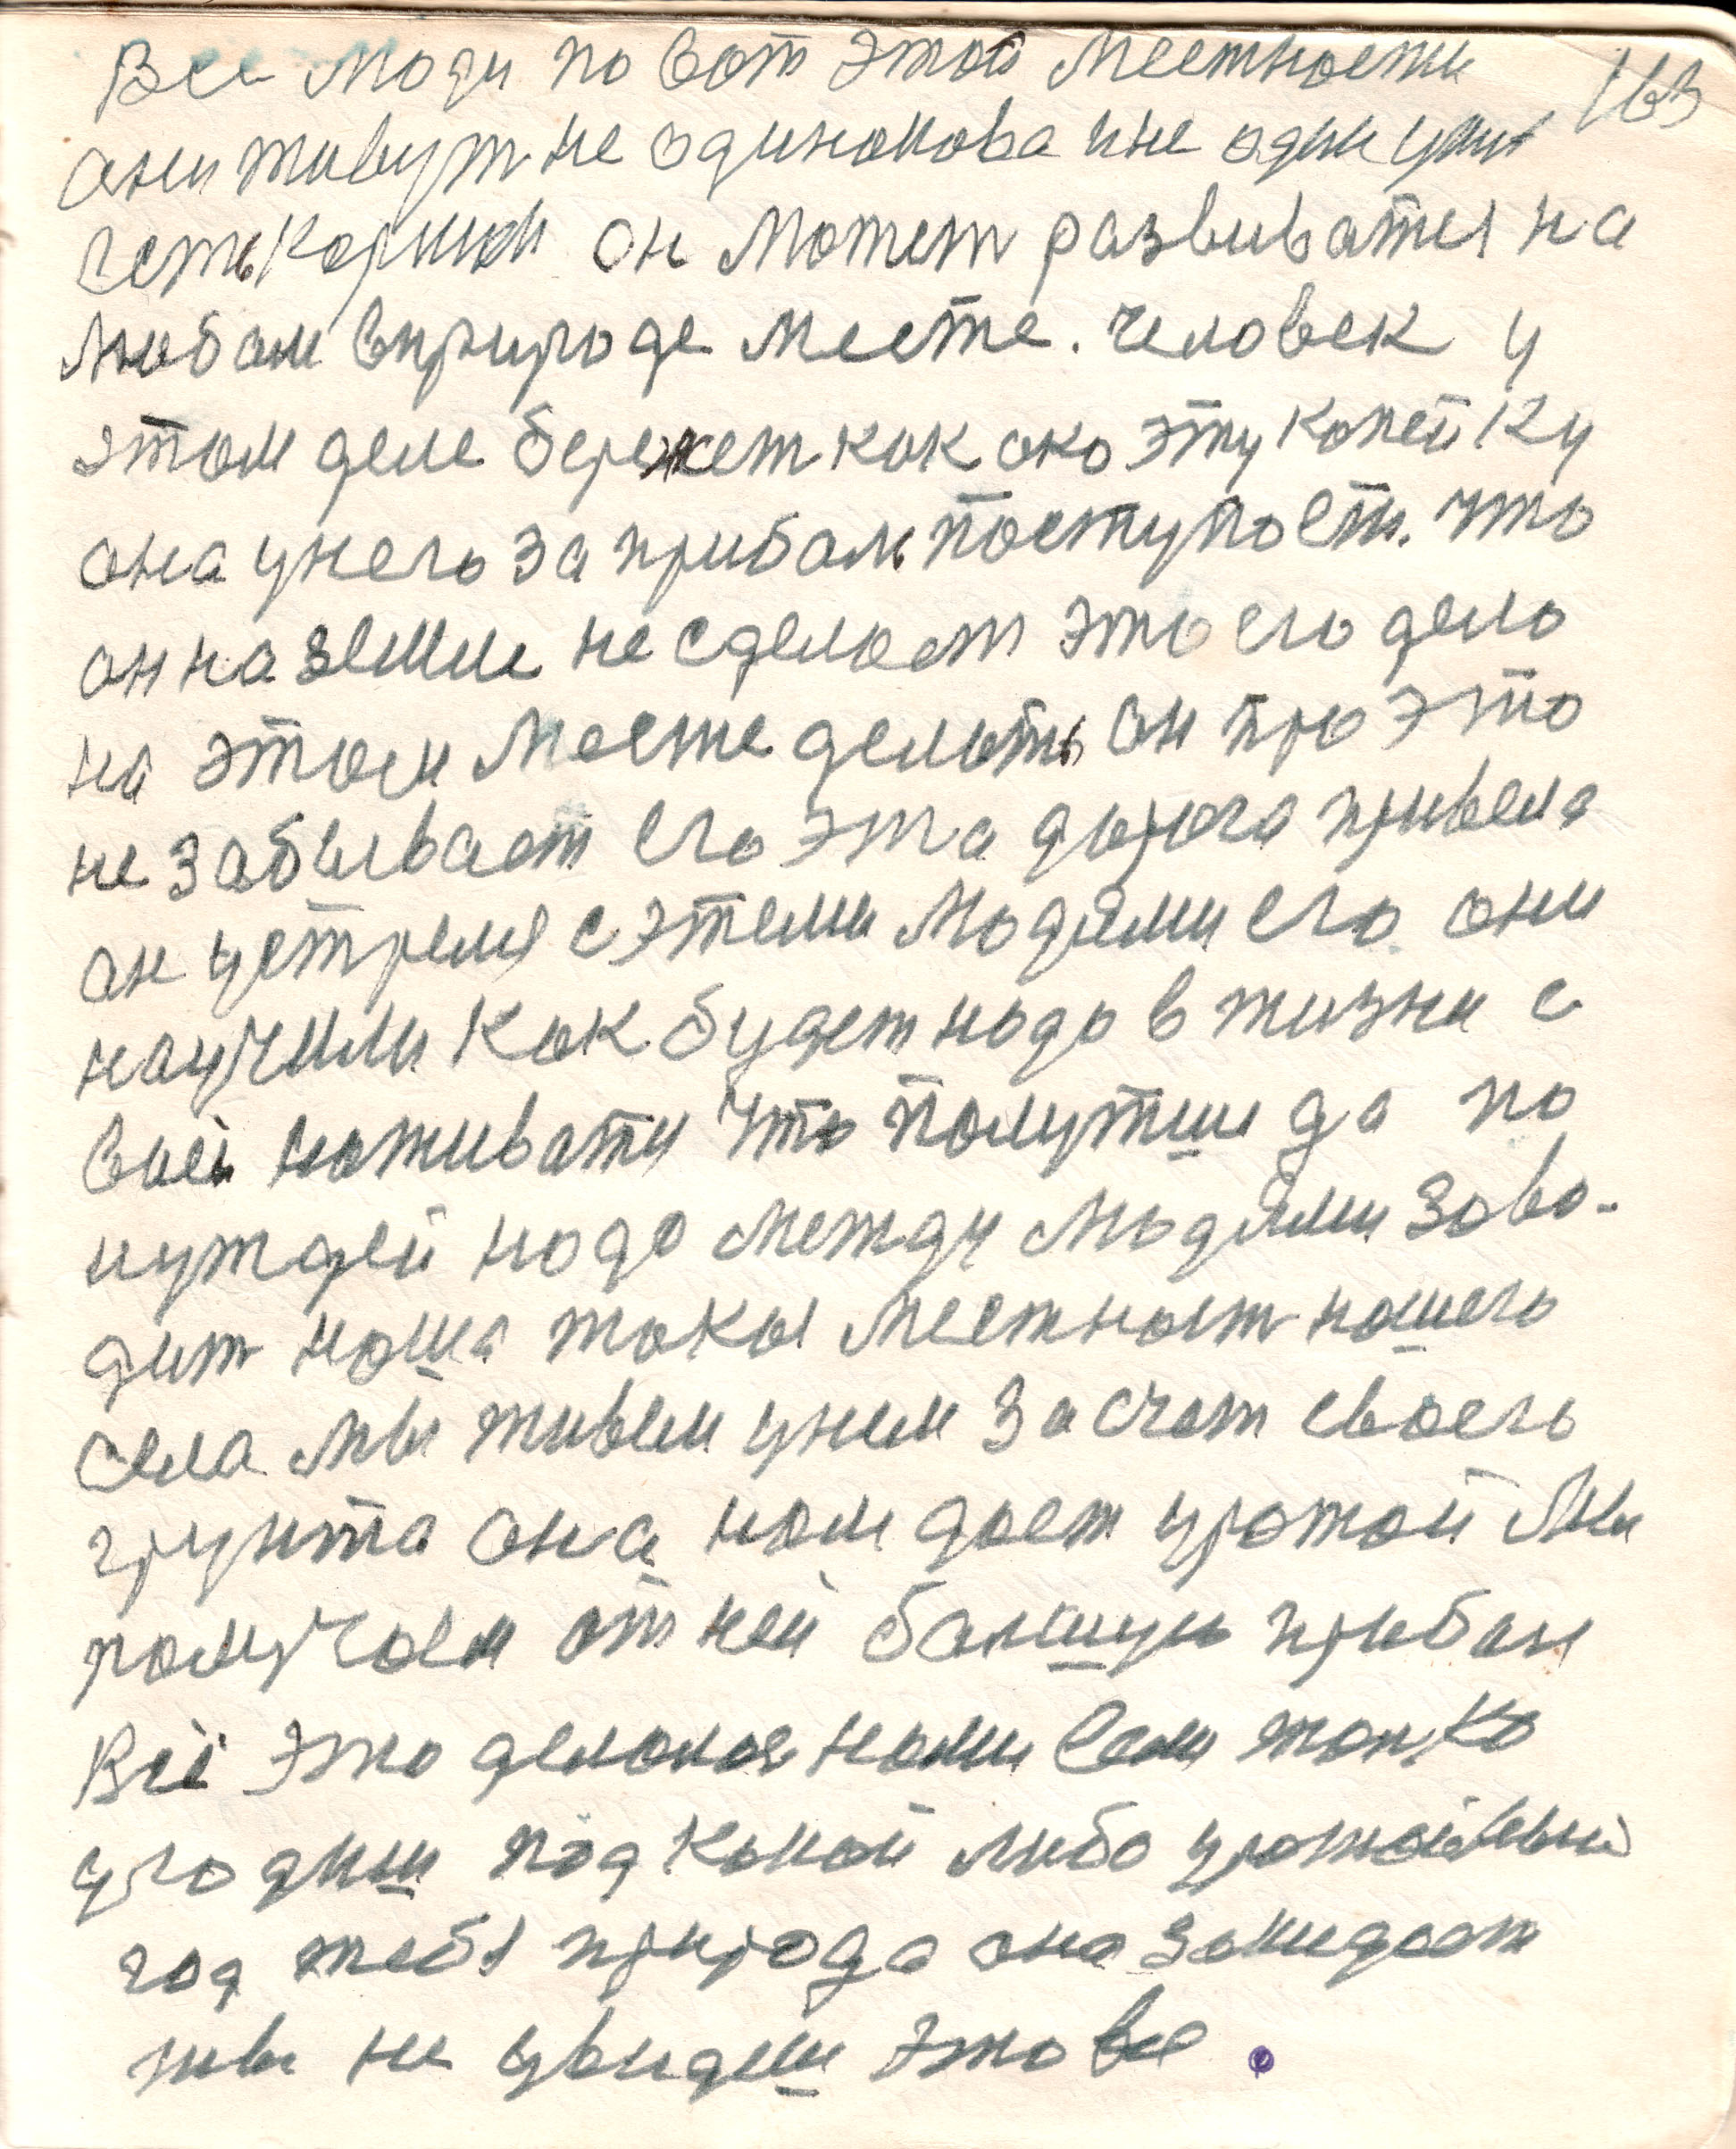 Все люди по вот этой местности
163
они живут не одинокова и не один у них
есть он может развиватися на
любом в природе месте. человек у
этом деле бережет как око эту копейку
она у него за прибыль поступает. что
он на земле не сделает это его дело
на этом месте делать он про это
не забывает его эта дорога привела
он устрелся с этеми людями его они
научили как будет надо в жизни с
ваей наживати что полутши да по
нуждей надо между людями заво-
дит наша така местност нашего
села мы живем у нем за счет своего
грунта она нам дает урожай мы
получаем от ней балшую прибыл
Всё это делалося нами если толко
угодиш под какой либо урожайный
год тебя природа она закидает
ты не увидеш это все.